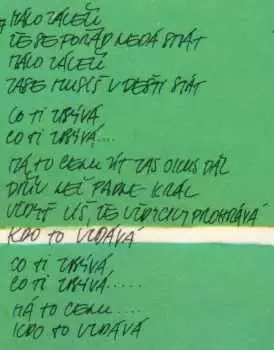 MÁLO ZÁLEŽÍ
ŽE SE POŘÁD NEDÁ SPÁT
MÁLO ZÁLEŽÍ
ZASE MUSÍŠ V DEŠTI STÁT
CO TI ZBÝVÁ
CO TI ZBÝVÁ....
MÁ TO CENU JÍT ZAS O KUS DÁL
DŘÍV NEŽ PADNE KRÁL
VŽDYŤ VÍŠ, ŽE VŽDYCKY PROHRÁVÁ
KDO TO VZDÁVÁ
CO TI ZBÝVÁ
CO TI ZBÝVÁ.....
MÁ TO CENU....
KDO TO VZDÁVÁ